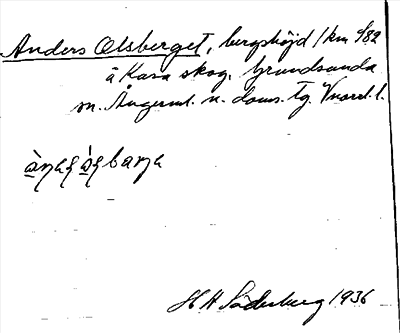 Anders Olsberget, bergshöjd 1 km
å Kasa skog, Grundsunda
sn. Ångerml. n. doms. tg. Vnorrl. l.
H A Söderberg 1936